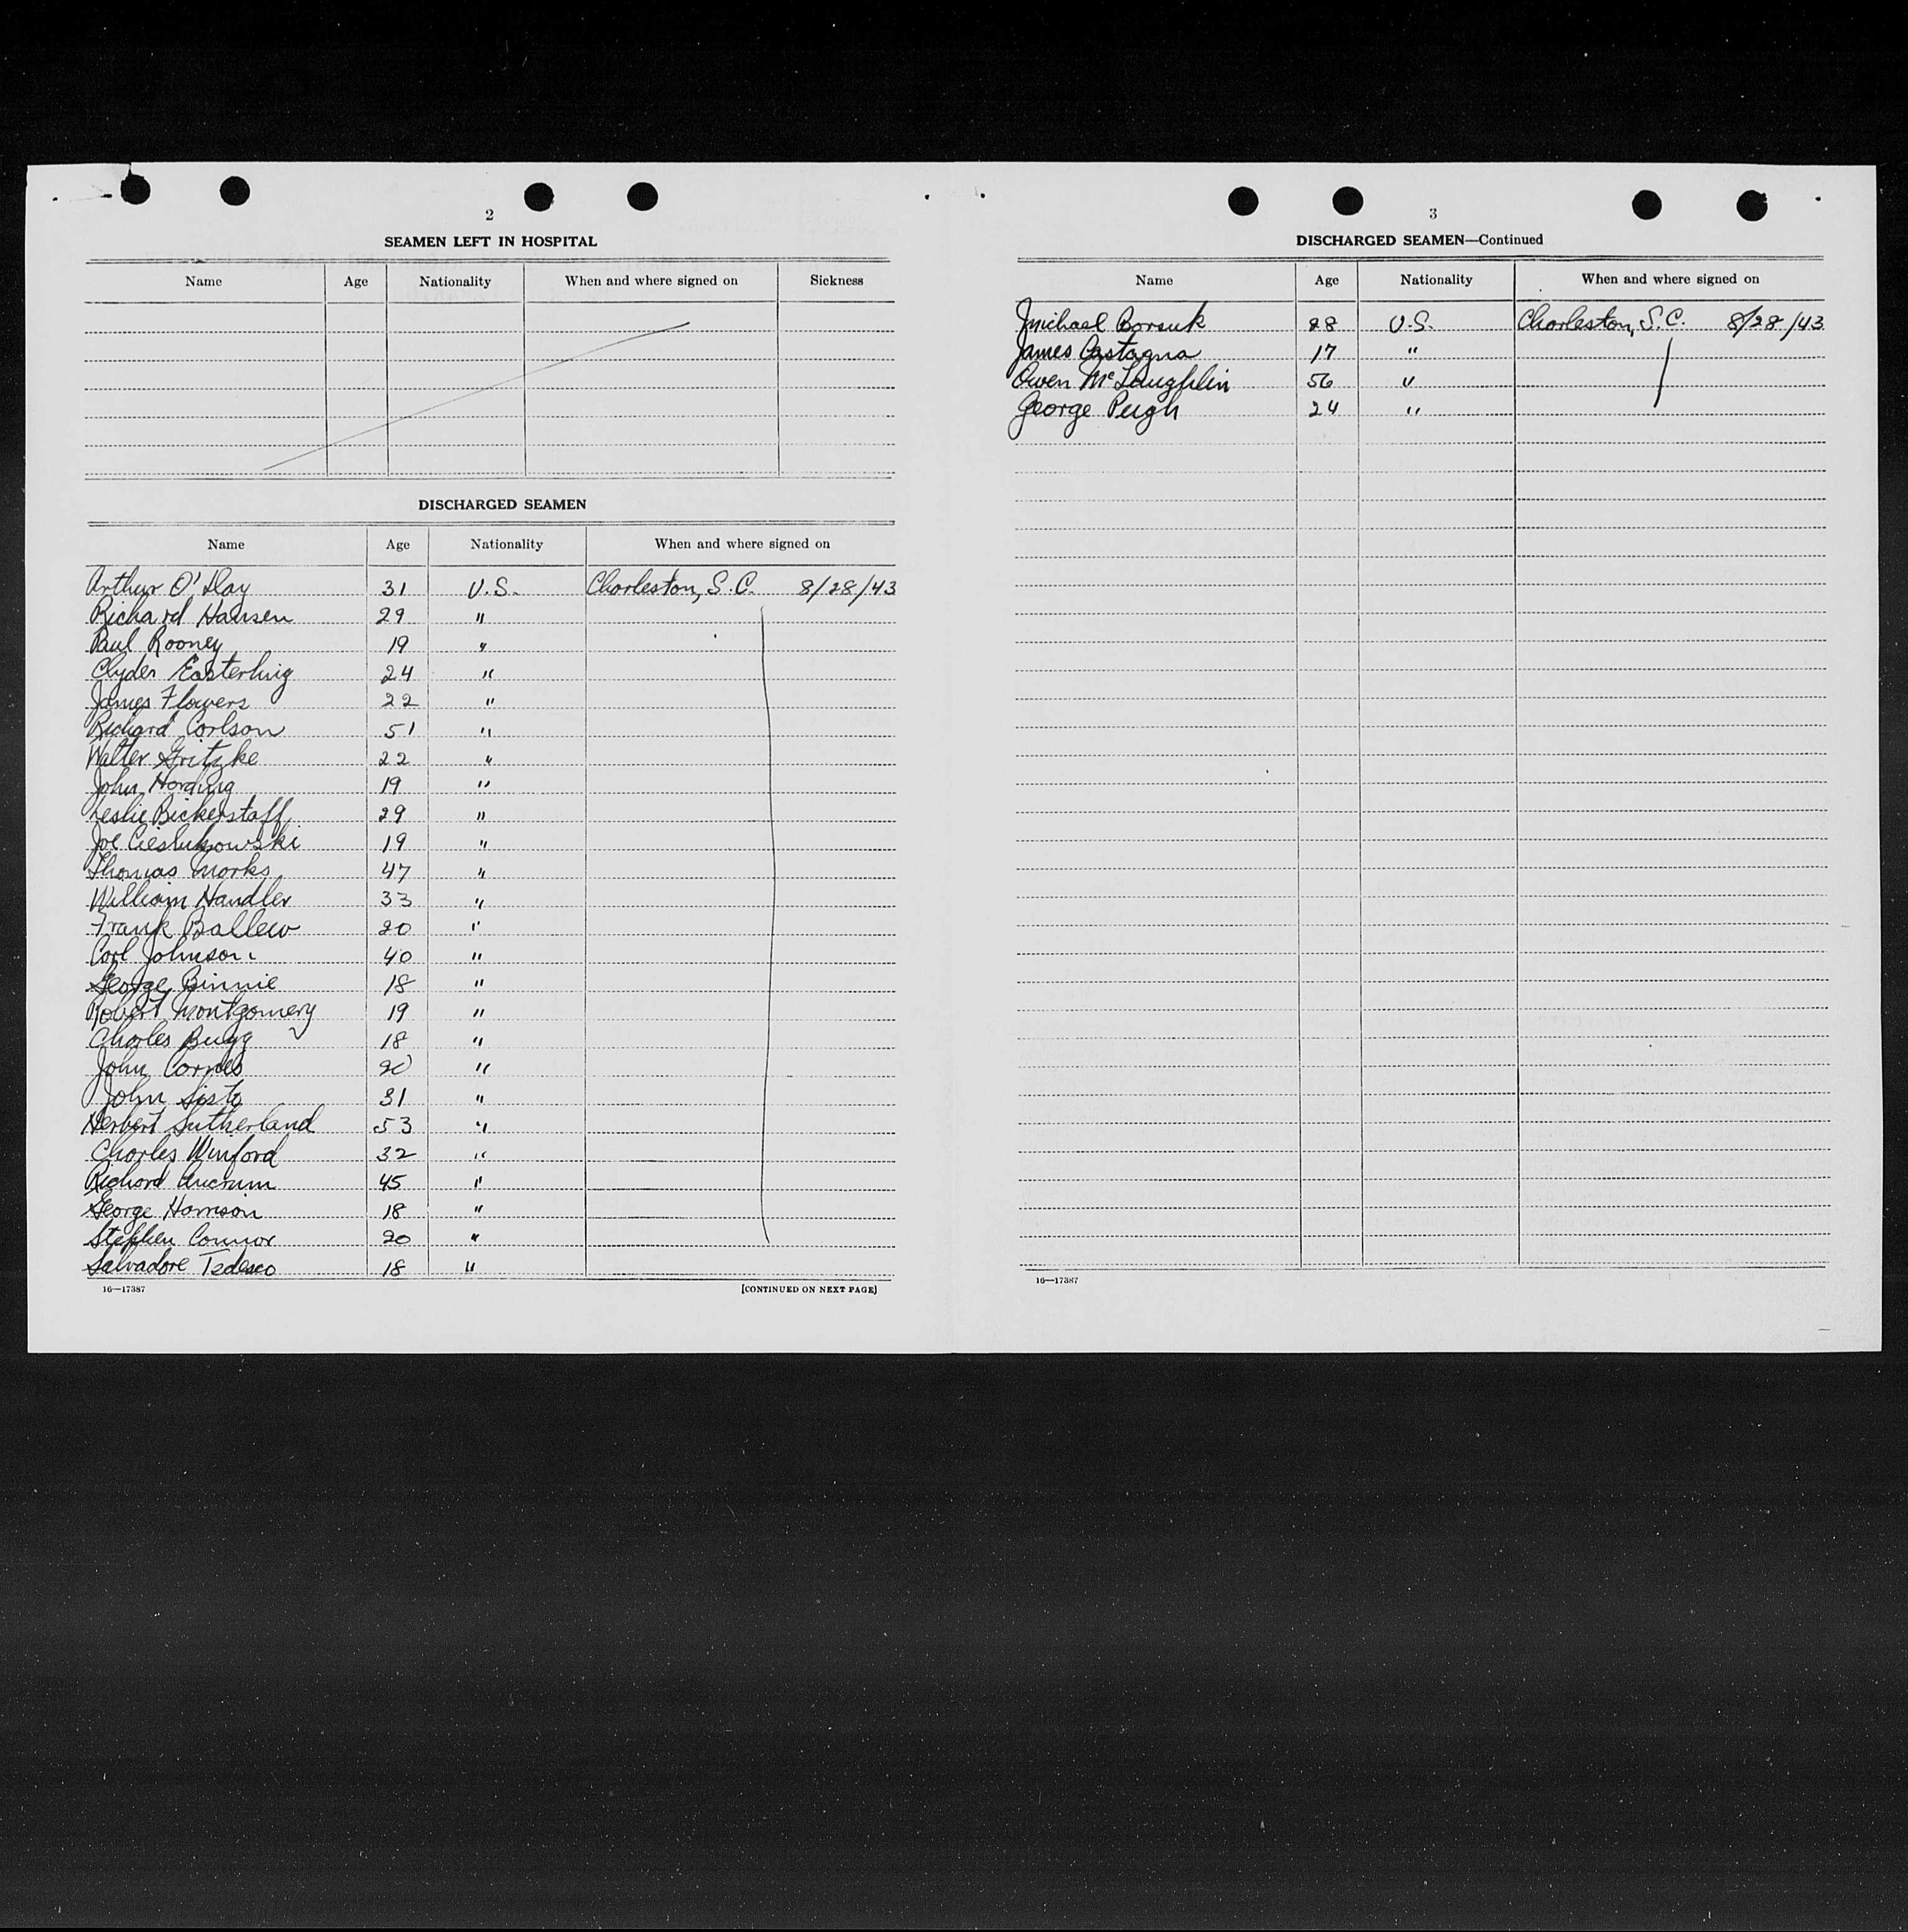 2
SEAMEN LEFT IN HOSPITAL
Name Age Nationality When and where signed on Sickness
DISCHARGED SEAMEN
Name Age Nationality When and where signed on
Arthur O'Day 31 U.S. Charleston, S.C. 8/28/43
Richard Hansen 29 "
Paul Rooney 19 "
Clyde Easterling 24 "
James Flowers 22 "
Richard Carlson 51 "
Walter Gritzke 22 "
John Harding 19 "
Leslie Bickerstaff 29 "
Joe 19 "
Thomas Marks 47 "
William Handler 33 "
Frank Ballew 20 "
Carl Johnson 40 "
George Binnie 18 "
Robert Montgomery 19 "
Charles Bugg 18 "
John 20 "
John Sisto 31 "
Herbert Sutherland 53 "
Charles Winford 32 "
Richard Ancrum 45 "
George Harrison 18 "
Stephen Connor 20 "
Salvadore Tedesco 18 "
16—17387 [CONTINUED ON NEXT PAGE]
3
DISCHARGED SEAMEN—Continued
Name Age Nationality When and where signed on
Michael Borsuk 28 U.S. Charleston, S.C. 8/28/43
James Castagna 17 "
Owen McLaughlin 56 "
George Pugh 24 "
16—17387